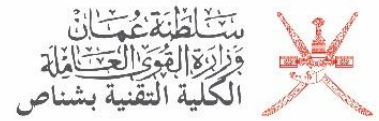 سَلْطَنَة عُمَان
وَزَارَة القُوَى العَامِلَة
الكلية التقنية بشناص